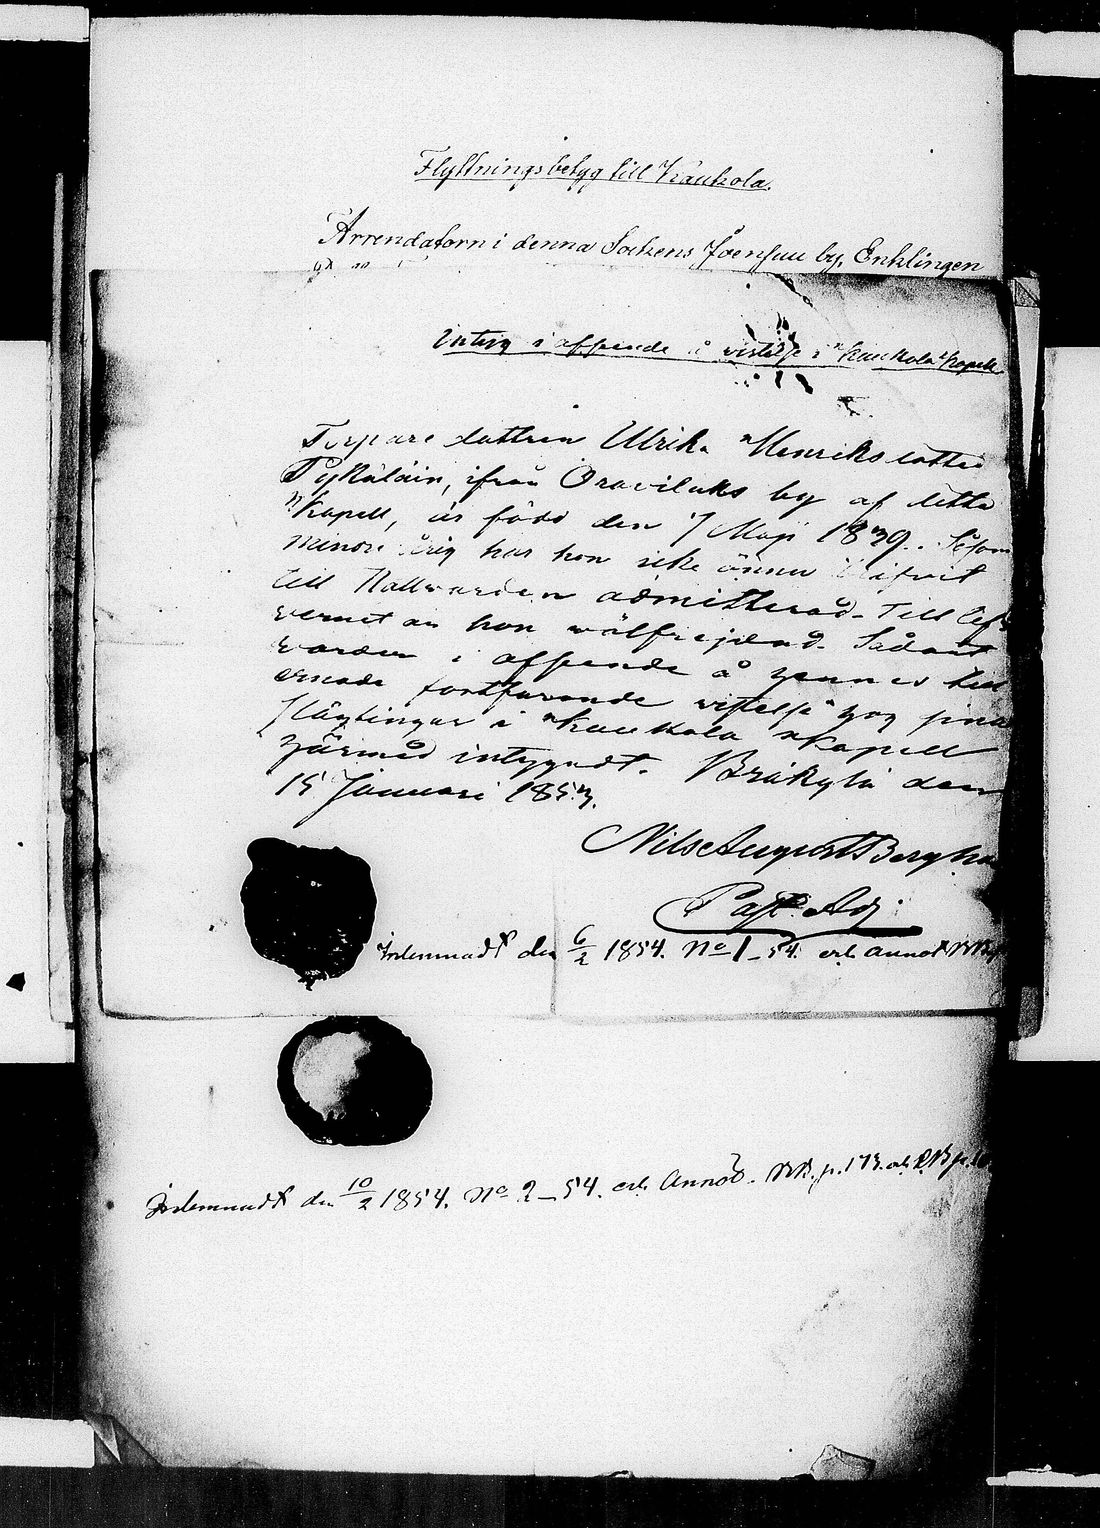 Flyttningsbetyg till Kaukola.
Arrendatorn i denna Sockens Joensuu by, Enklingen
Intyg i afseende å vistelse i Kaukola Kapell
Torpare dottren Ulrika Henriksdotter
Pykäläin, ifrån Oravilahs by af detta
Kapell, är född den 7 Maji 1839. Såsom
minderårig har hon icke ännu blifvit
till Nattvarden admitterad. Till lef-
vernet är hon wälfrejdad. Sådant
varder i afseende å hennes till
ernade fortfarande vistelse hos sina
slägtingar i Kaukola Kapell
härmed intygadt. Bräkylä den
15 Januari 1853.
Nils August Bergh
Past. Adj.
Inlemnadt den 6/2 1854. No 1_54. och annot
Inlemnadt den 10/2 1854. No 2_54. och Annot. p. 173. och